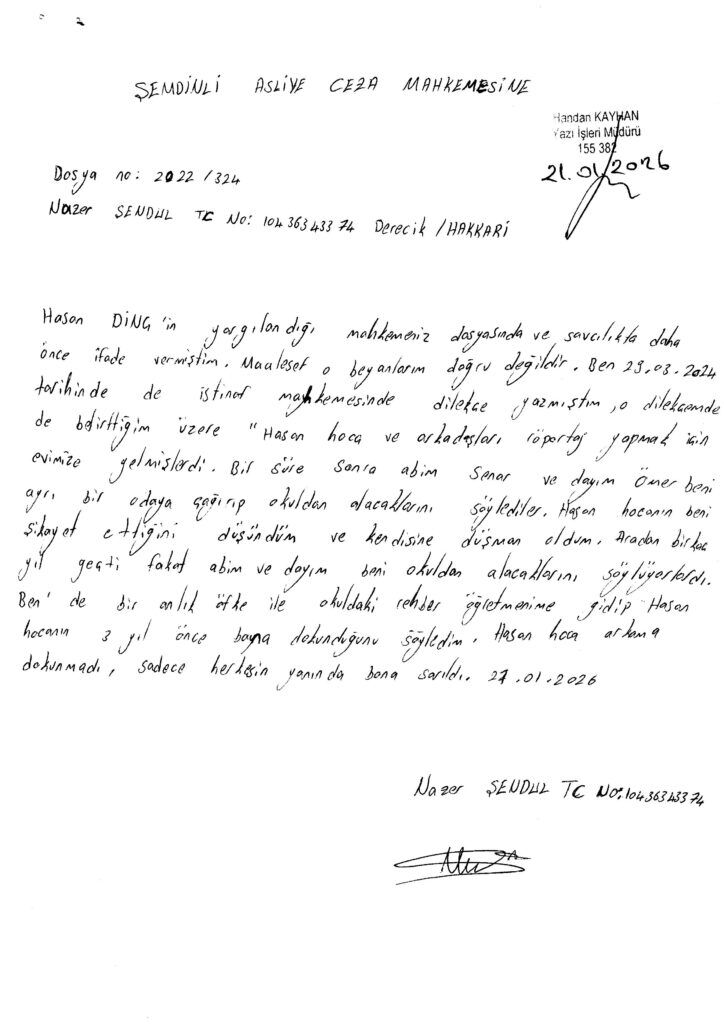 ŞEMDİNLİ ASLİYE CEZA MAHKEMESİNE
Handan KAYHAN
Yazı İşleri Müdürü
155 382
21.01.2026
Dosya no: 2022/324
Nazer ŞENDUL TC No: 104 363 433 74 Derecik/HAKKARİ
Hasan DİNÇ'in yargılandığı mahkemeniz dosyasında ve savcılıkta daha
önce ifade vermiştim. Maalesef o beyanlarım doğru değildir. Ben 29.03.2024
tarihinde de istinaf mahkemesinde dilekçe yazmıştım, o dilekçemde
de belirttiğim üzere "Hasan hoca ve arkadaşları röportaj yapmak için
evimize gelmişlerdi. Bir süre sonra abim Senar ve dayım Ömer beni
ayrı bir odaya çağırıp okuldan alacaklarını söylediler. Hasan hocanın beni
şikayet ettiğini düşündüm ve kendisine düşman oldum. Aradan birkaç
yıl geçti fakat abim ve dayım beni okuldan alacaklarını söylüyorlardı.
Ben'de bir anlık öfke ile okuldaki rehber öğretmenime gidip Hasan
hocanın 3 yıl önce bana dokunduğunu söyledim. Hasan hoca arkama
dokunmadı, sadece herkesin yanında bana sarıldı. 27.01.2026
Nazer ŞENDUL TC No:104 363 433 74